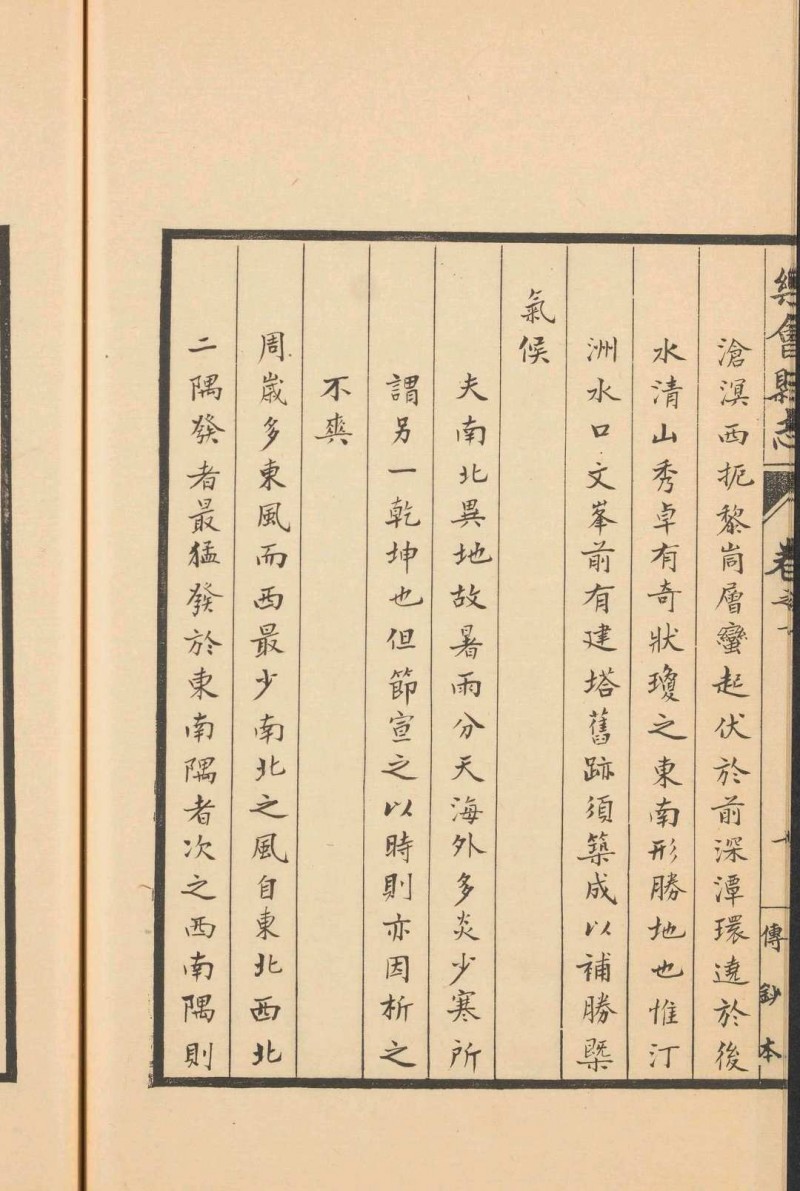 樂會縣志 卷之一
傳鈔本
滄溟西扼黎峝層蠻起伏於前深潭環遶於後
水清山秀卓有奇狀瓊之東南形勝地也惟汀
洲水口文峯前有建塔舊跡須築成以補勝槩
氣候
夫南北異地故暑雨分天海外多炎少寒所
謂另一乾坤也但節宣之以時則亦因析之
不爽
周歲多東風而西最少南北之風自東北西北
二隅發者最猛發於東南隅者次之西南隅則